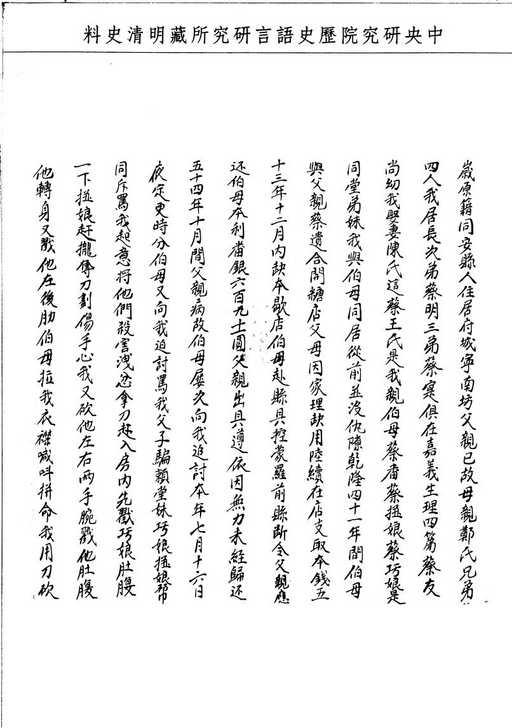 中央研究院歷史語言研究所藏明清史料
歲原籍同安縣人住居府城寧南坊父親已故母親鄭氏兄弟
四人我居長次弟蔡明三弟蔡寔俱在嘉義生理四弟蔡友
尚幼我娶妻陳氏這蔡王氏是我親伯母蔡番蔡挺娘蔡巧娘是
同堂弟妹我與伯母同居從前並沒仇隙乾隆四十一年間伯母
與父親蔡遺合開糖店父母因家理缺用陸續在店支取本錢五
十三年十二月內缺本歇店伯母赴縣具控蒙羅前縣斷令父親應
还伯母本利番銀六百九十圓父親出具遵依因無力未經歸还
五十四年十月間父親病故伯母屢次向我追討本年七月十六日
夜定更時分伯母又向我追討罵我父子騙賴堂妹巧娘挺娘幫
同斥罵我起意將他們殺害洩忿拿刀赴入房內先戳巧娘肚腹
一下挺娘赶攏奪刀劃傷手心我又砍他左右兩手腕戳他肚腹
他轉身又戳他左後肋伯母拉我衣襟喊叫拼命我用刀砍